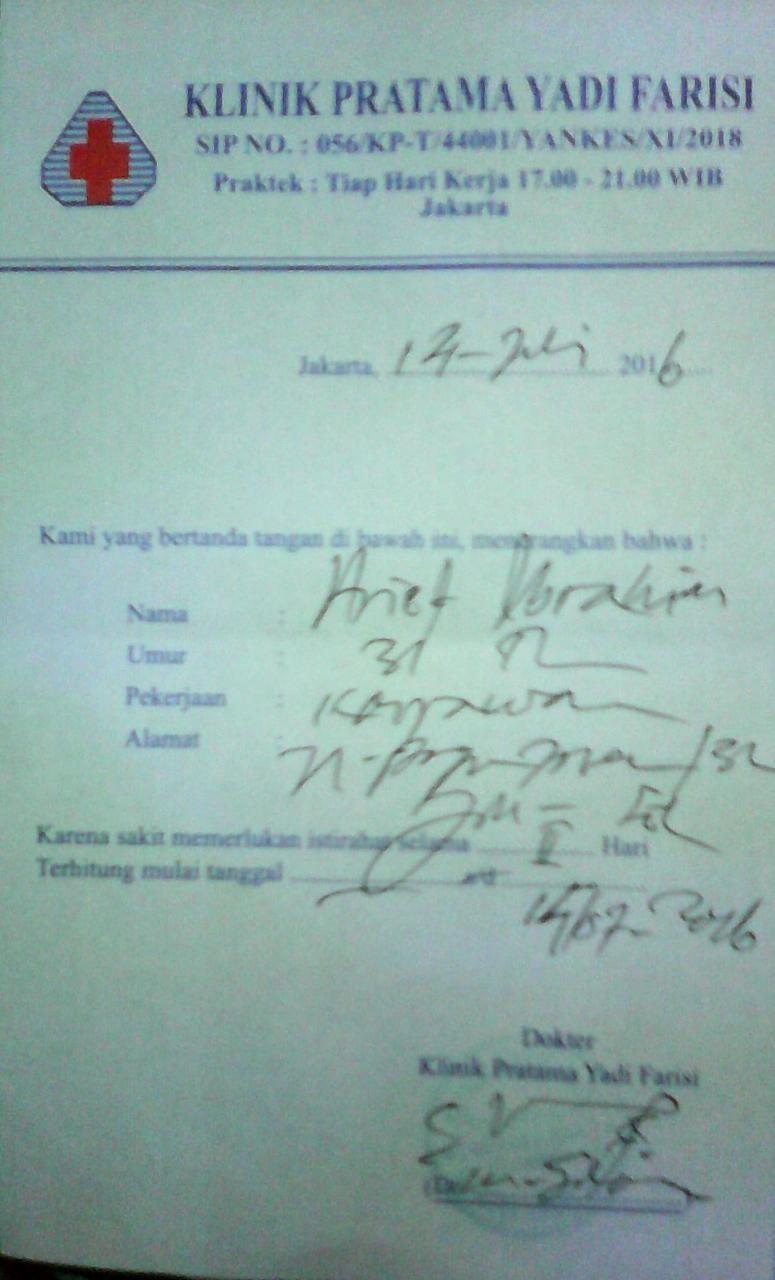 KLINIK PRATAMA YADI FARISI
SIP NO. : 056/KP-T/44001/YANKES/XI/2018
Praktek : Tiap Hari Kerja 17.00 - 21.00 WIB
Jakarta
Jakarta, Juli 2016
Kami yang bertanda tangan di bawah ini, menerangkan bahwa :
Nama : Arief Ibrahim
Umur : 31 Th
Pekerjaan : Karyawan
Alamat :
Karena sakit memerlukan istirahat selama II Hari
Terhitung mulai tanggal
Dokter
Klinik Pratama Yadi Farisi